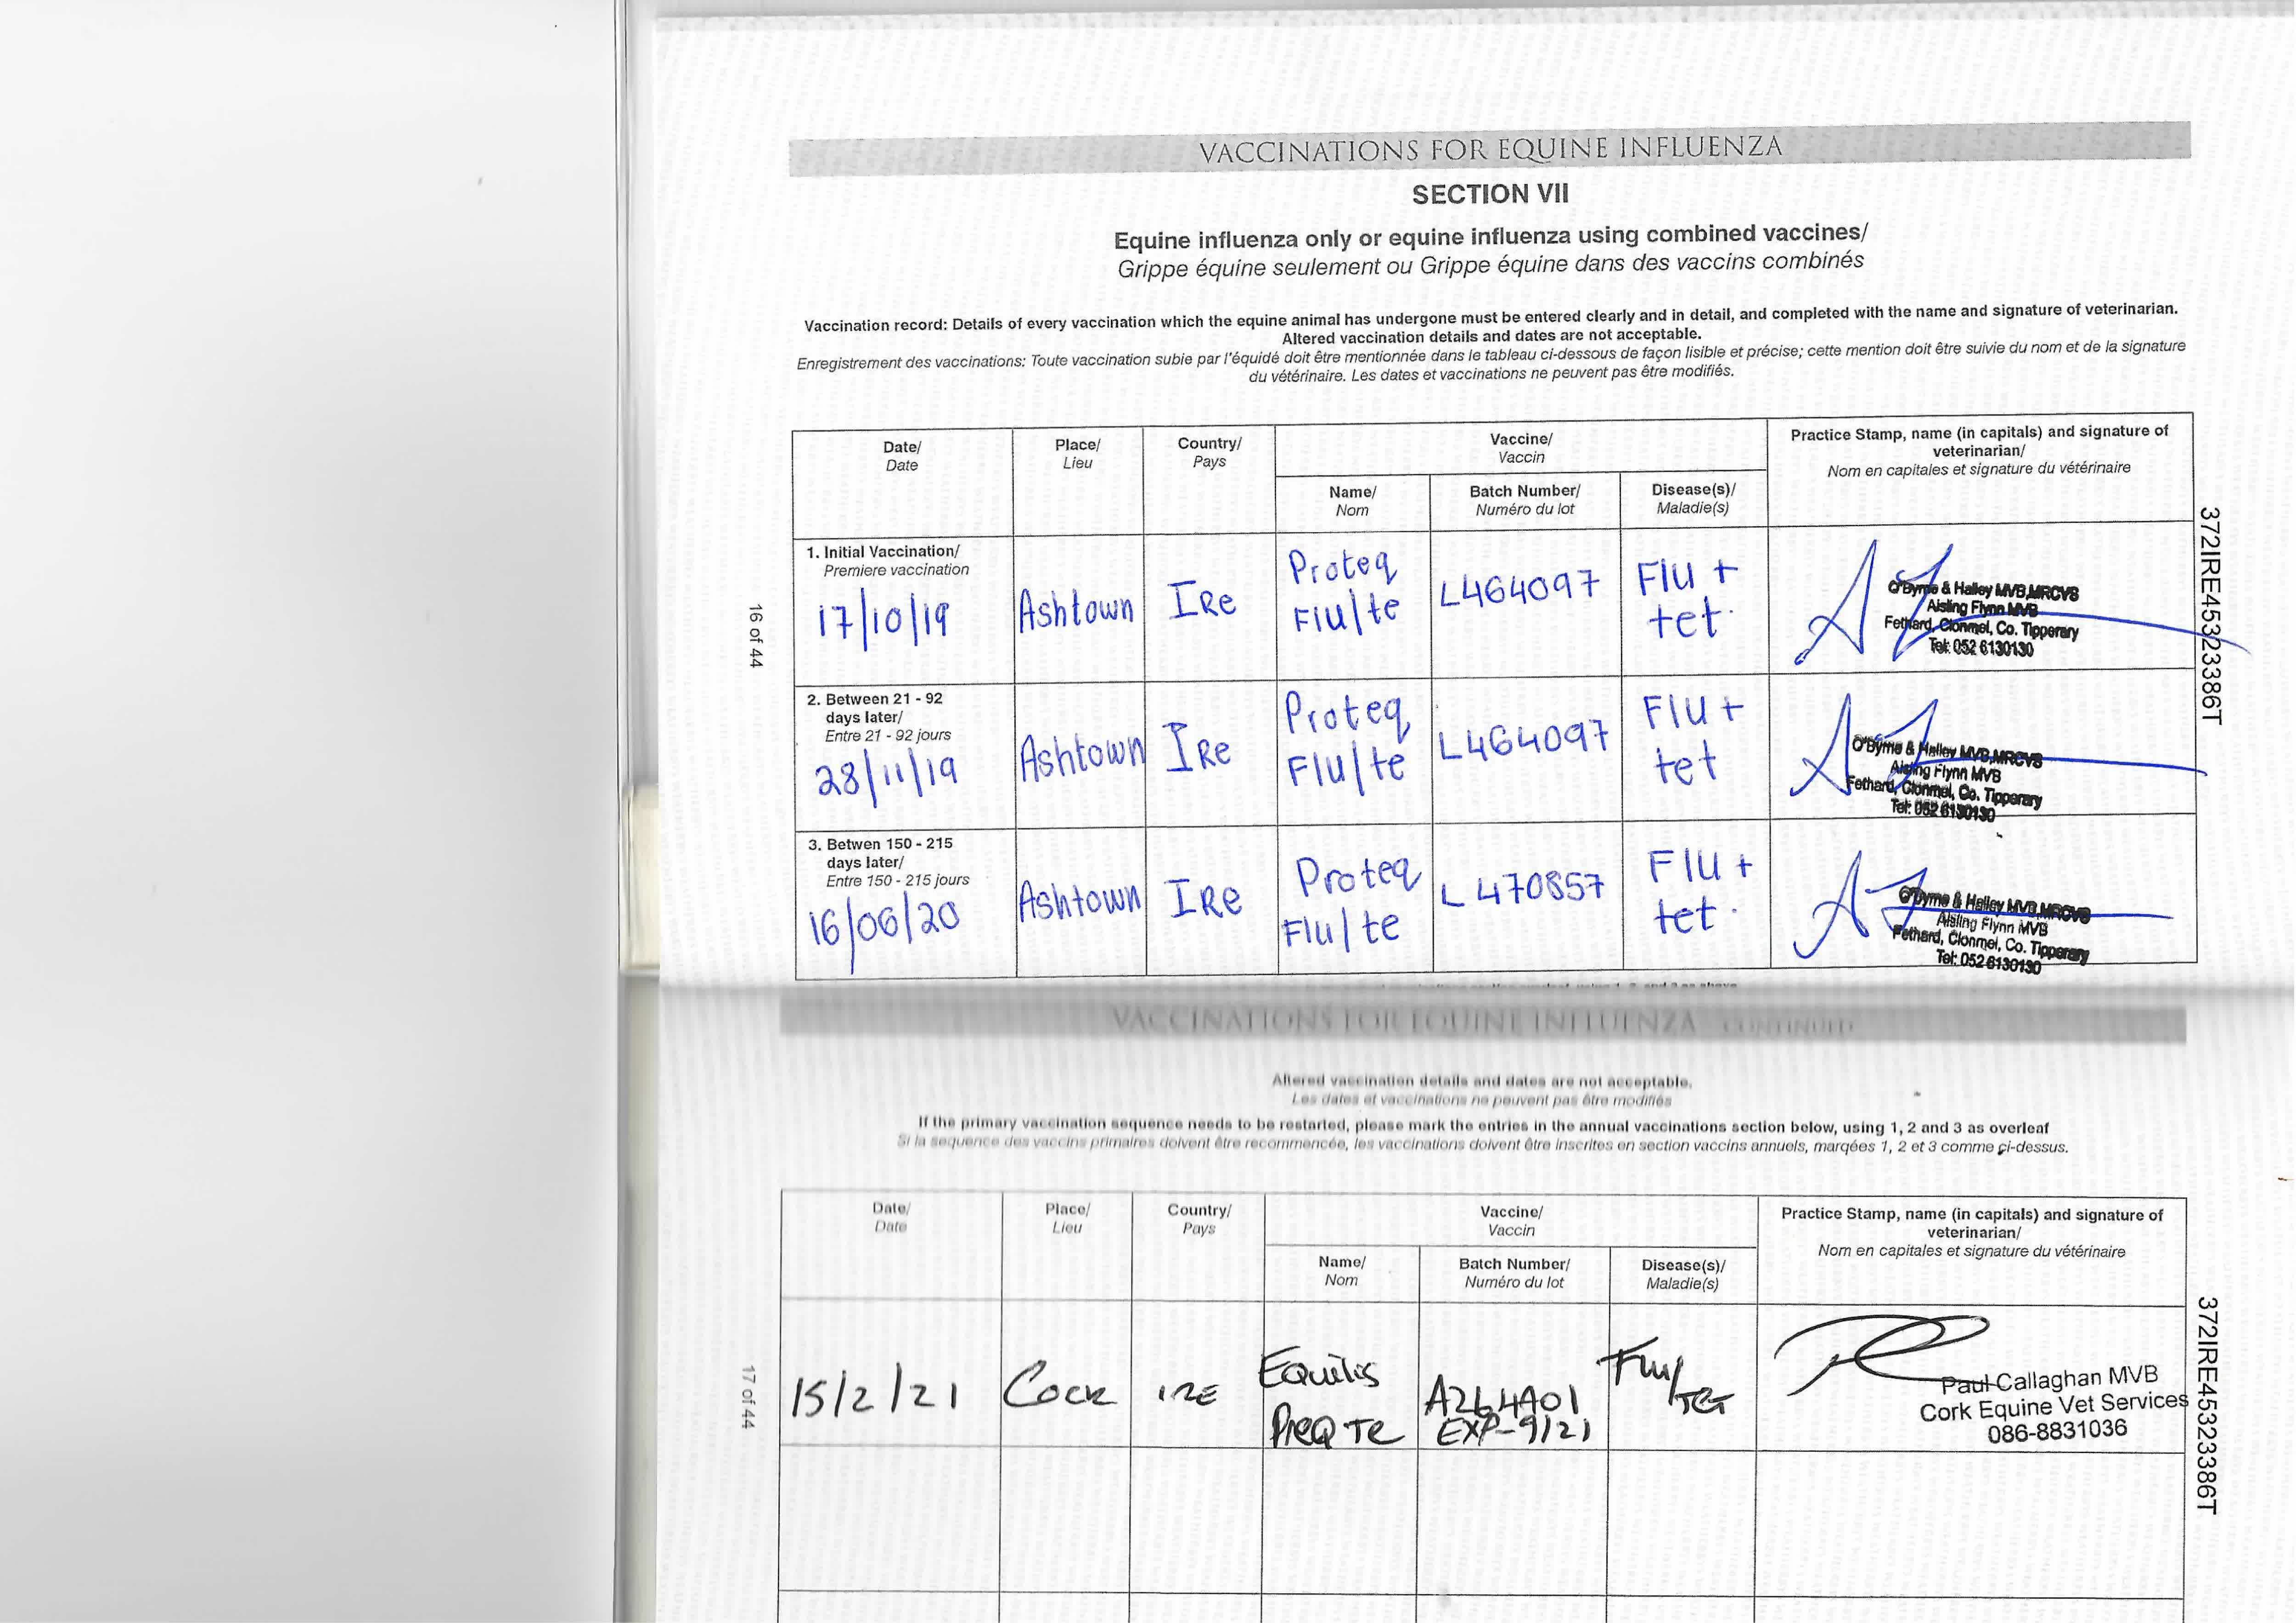 VACCINATIONS FOR EQUINE INFLUENZA
SECTION VII
Equine influenza only or equine influenza using combined vaccines/
Grippe équine seulement ou Grippe équine dans des vaccins combinés
Vaccination record: Details of every vaccination which the equine animal has undergone must be entered clearly and in detail, and completed with the name and signature of veterinarian.
Altered vaccination details and dates are not acceptable.
Enregistrement des vaccinations: Toute vaccination subie par l'équidé doit être mentionnée dans le tableau ci-dessous de façon lisible et précise; cette mention doit être suivie du nom et de la signature
du vétérinaire. Les dates et vaccinations ne peuvent pas être modifiés.
Date/
Date
Place/
Lieu
Country/
Pays
Vaccine/
Vaccin
Practice Stamp, name (in capitals) and signature of
veterinarian/
Nom en capitales et signature du vétérinaire
Name/
Nom
Batch Number/
Numéro du lot
Disease(s)/
Maladie(s)
1. Initial Vaccination/
Premiere vaccination
17/10/19
Ashtown
IRe
Proteq
Flu/te
L464097
Flu +
tet.
O'Byrne & Halley MVB,MRCVS
Aisling Flynn MVB
Fethard, Clonmel, Co. Tipperary
Tel: 052 6130130
2. Between 21 - 92
days later/
Entre 21 - 92 jours
28/11/19
Ashtown
IRe
Proteq
Flu/te
L464097
Flu +
tet
O'Byrne & Halley MVB,MRCVS
Aisling Flynn MVB
Fethard, Clonmel, Co. Tipperary
Tel: 052 6130130
3. Betwen 150 - 215
days later/
Entre 150 - 215 jours
16/06/20
Ashtown
IRe
Proteq
Flu/te
L470857
Flu +
tet.
O'Byrne & Halley MVB,MRCVS
Aisling Flynn MVB
Fethard, Clonmel, Co. Tipperary
Tel: 052 6130130
16 of 44
372IRE45323386T
VACCINATIONS FOR EQUINE INFLUENZA CONTINUED
Altered vaccination details and dates are not acceptable.
Les dates et vaccinations ne peuvent pas être modifiés
If the primary vaccination sequence needs to be restarted, please mark the entries in the annual vaccinations section below, using 1, 2 and 3 as overleaf
Si la sequence des vaccins primaires doivent être recommencée, les vaccinations doivent être inscrites en section vaccins annuels, marqées 1, 2 et 3 comme çi-dessus.
Date/
Date
Place/
Lieu
Country/
Pays
Vaccine/
Vaccin
Practice Stamp, name (in capitals) and signature of
veterinarian/
Nom en capitales et signature du vétérinaire
Name/
Nom
Batch Number/
Numéro du lot
Disease(s)/
Maladie(s)
15/2/21
Cork
IRE
Equilis
PreQ Te
A264A01
EXP-9/21
Flu/
Paul Callaghan MVB
Cork Equine Vet Services
086-8831036
17 of 44
372IRE45323386T